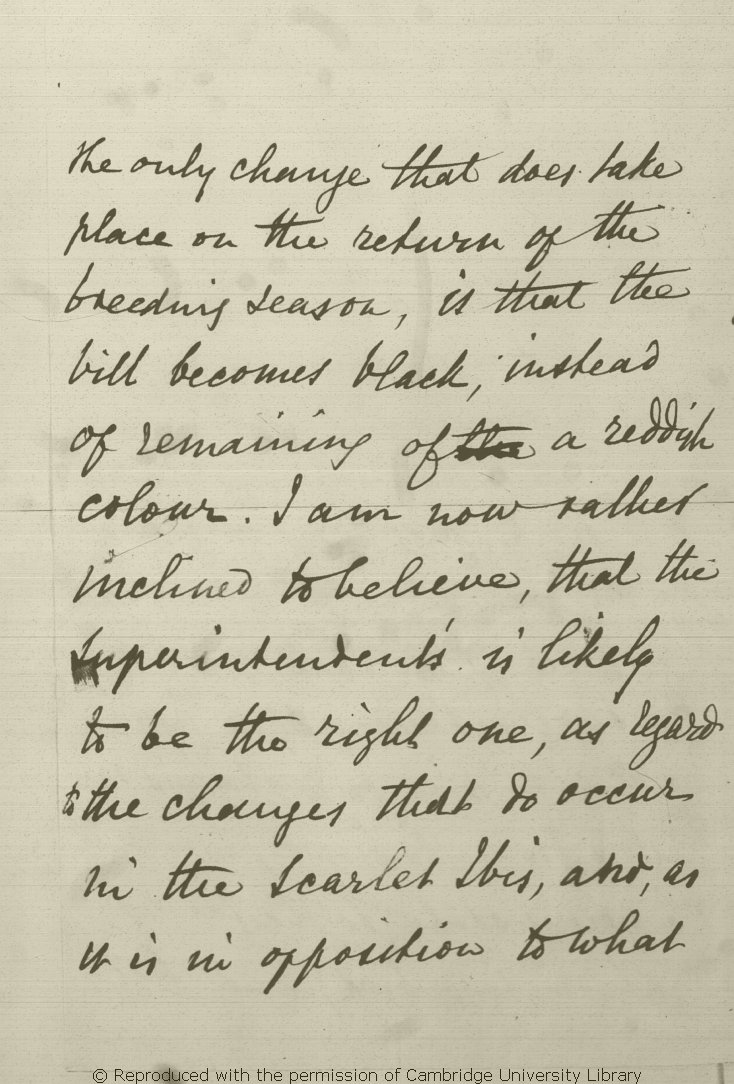 the only change that does take
place on the return of the
breeding season, is that the
bill becomes black, instead
of remaining of the a reddish
colour. I am now rather
inclined to believe, that the
Superintendent's is likely
to be the right one, as regard
to the changes that do occur
in the Scarlet Ibis, and, as
it is in opposition to what
© Reproduced with the permission of Cambridge University Library